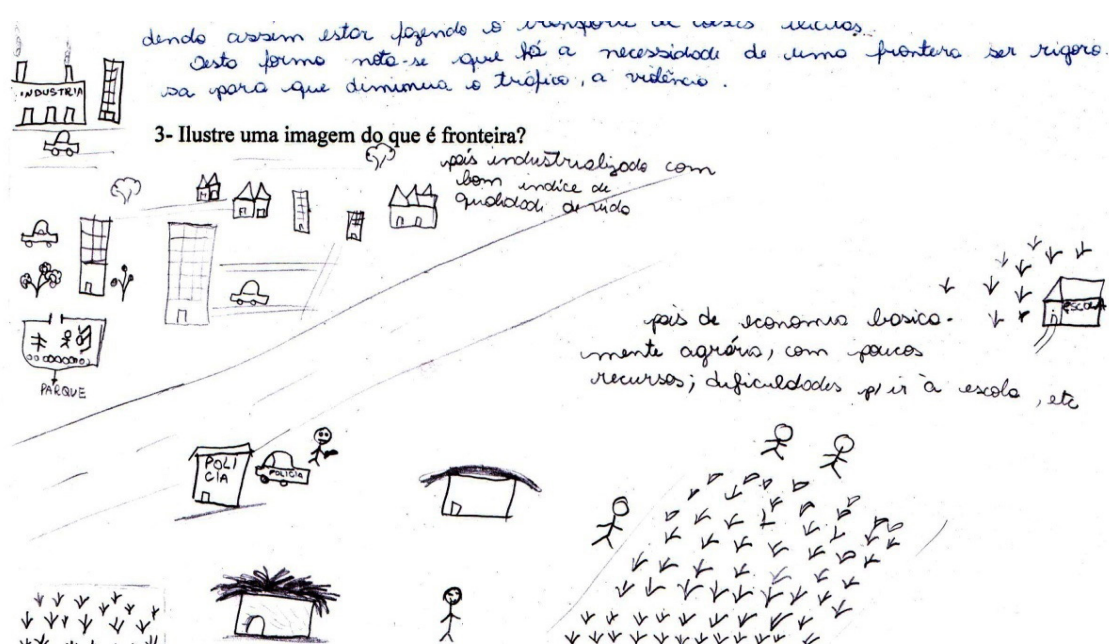 dendo assim estar fazendo o transporte de coisas ilícitas.
Desta forma nota-se que há a necessidade de uma frontera ser rigoro-
sa para que diminua o tráfico, a violência.
INDUSTRIA
3- Ilustre uma imagem do que é fronteira?
país industrializado com
bom indice de
qualidade de vida
ESCOLA
país de economia basica-
mente agrária, com poucos
recursos; dificuldades p/ ir à escola, etc
PARQUE
POLI
CIA
POLICIA